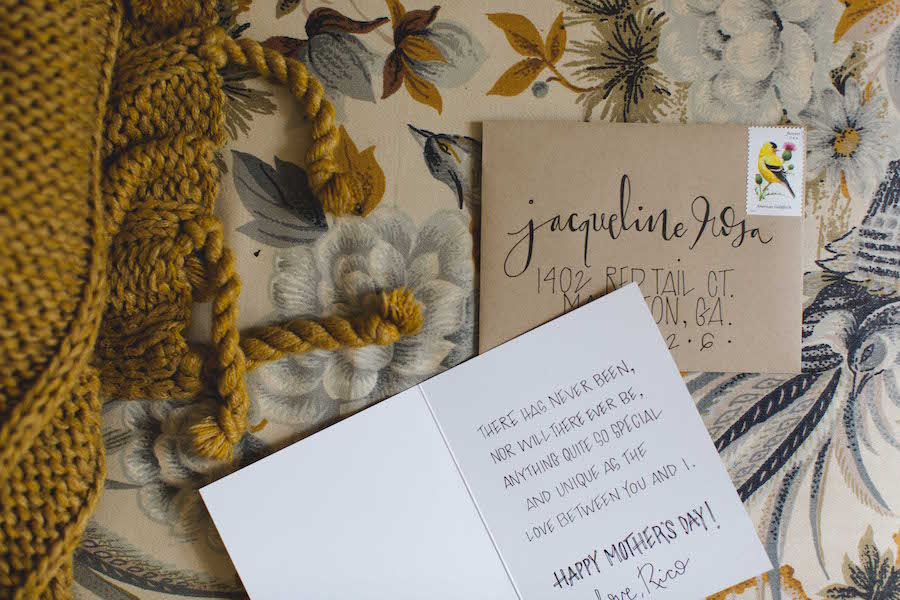 jacqueline Rosa
1402 RED TAIL CT.
GA.
2.6.
THERE HAS NEVER BEEN,
NOR WILL THERE EVER BE,
ANYTHING QUITE SO SPECIAL
AND UNIQUE AS THE
LOVE BETWEEN YOU AND I.
HAPPY MOTHER'S DAY!
Love, Rico